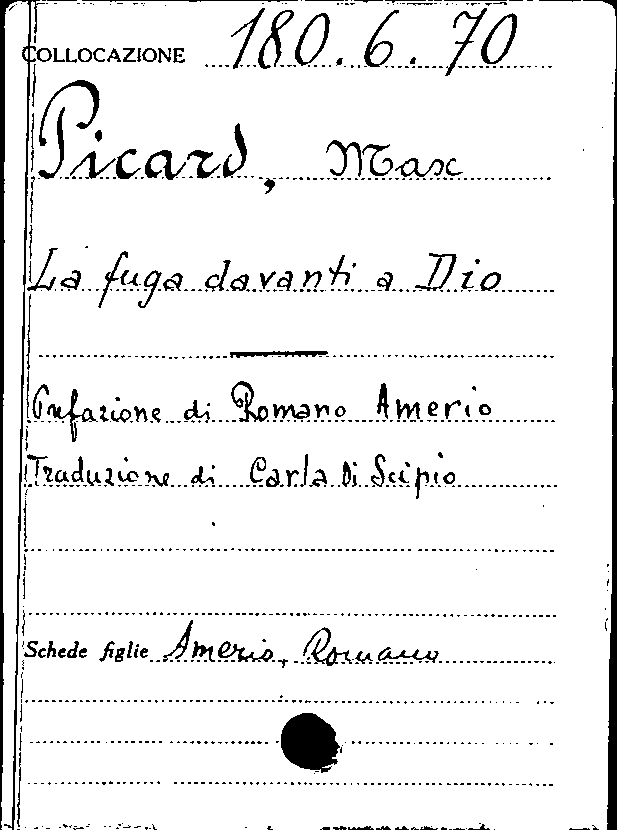 COLLOCAZIONE 180.6.70
Picard, Max
La fuga davanti a Dio
Prefazione di Romano Amerio
Traduzione di Carla Di Scipio
Schede figlie Amerio, Romano